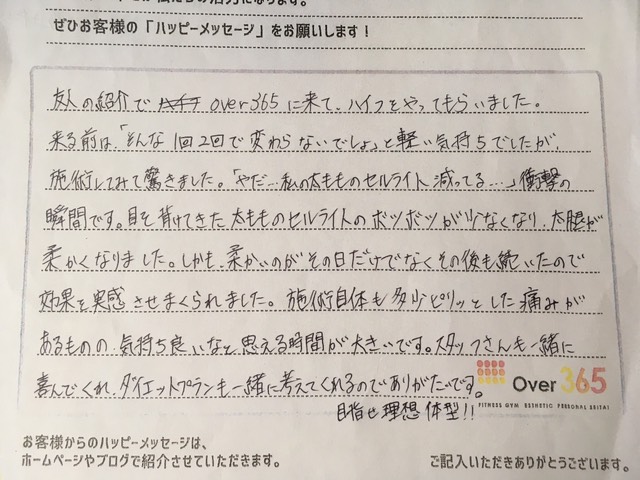 ぜひお客様の「ハッピーメッセージ」をお願いします！
友人の紹介で over365に来て、ハイフをやってもらいました。
来る前は、「そんな1回2回で変わらないでしょ」と軽い気持ちでしたが、
施術してみて驚きました。「やだ…私の太もものセルライト減ってる…」衝撃の
瞬間です。目を背けてきた太もものセルライトのボツボツが少なくなり、太腿が
柔かくなりました。しかも、柔かいのがその日だけでなくその後も続いたので
効果を実感させまくられました。施術自体も多少ピリッとした痛みが
あるものの、気持ち良いなと思える時間が大きいです。スタッフさんも一緒に
喜んでくれ、ダイエットプランも一緒に考えてくれるのでありがたいです。
Over 365
FITNESS GYM ESTHETIC PERSONAL SEITAI
目指せ理想体型!!
お客様からのハッピーメッセージは、
ホームページやブログで紹介させていただきます。
ご記入いただきありがとうございます。